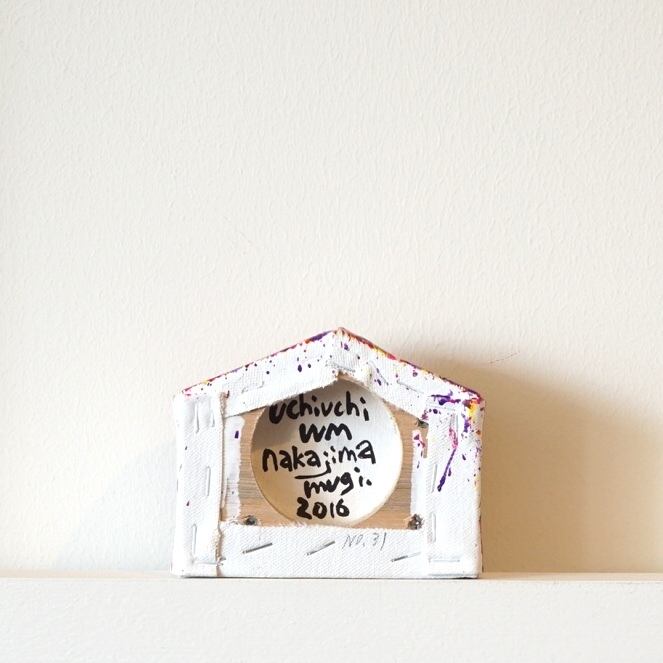 uchiuchi
wm
nakajima
mugi.
2016
NO.31